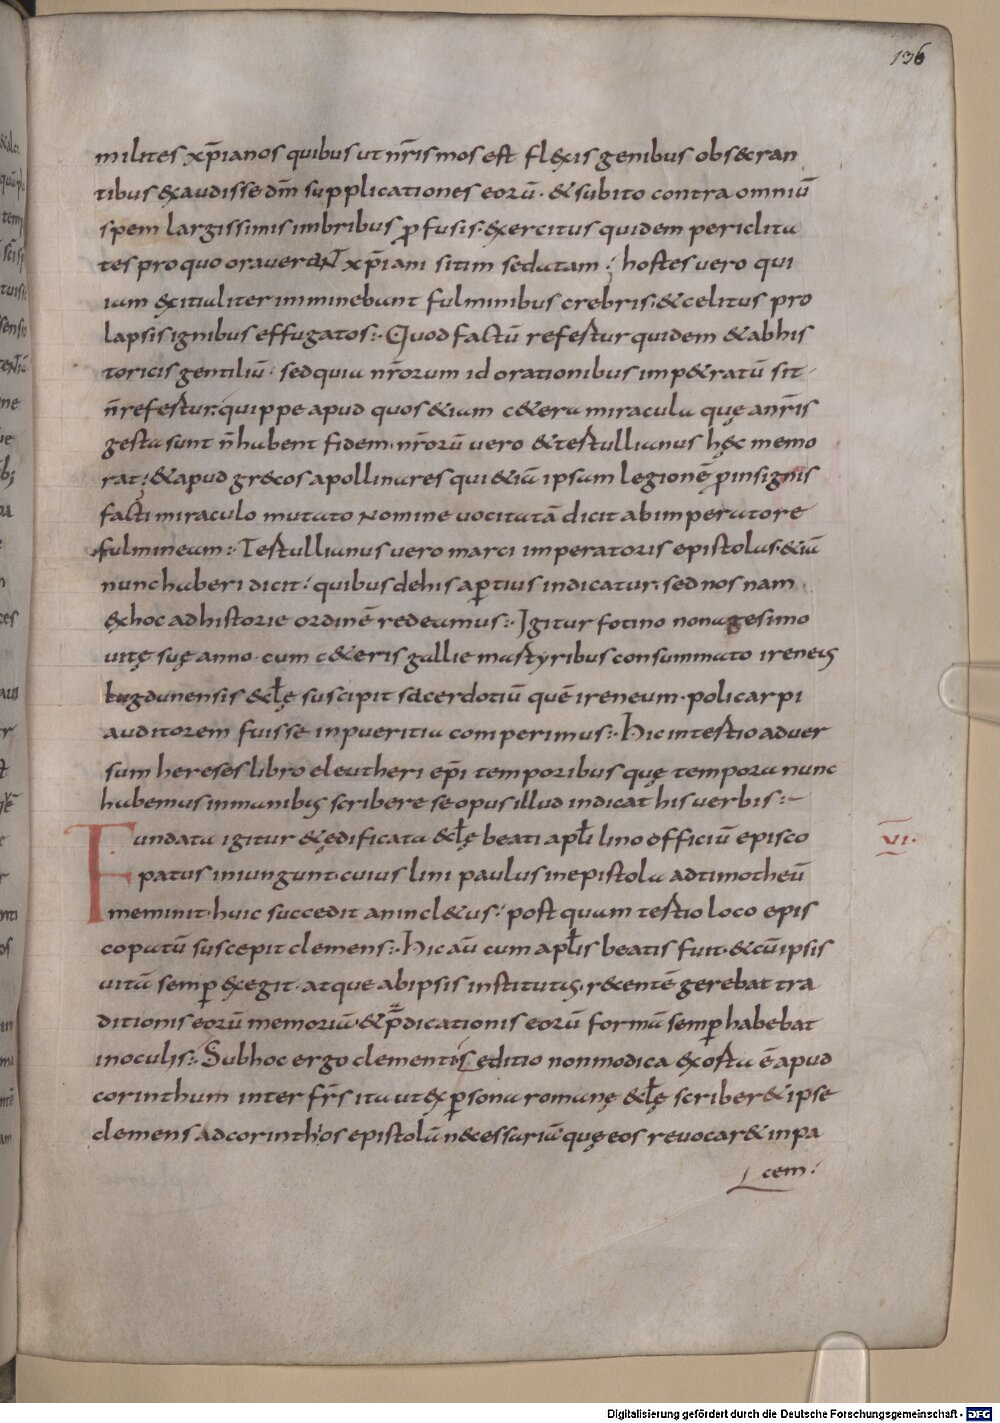 136
milites xp̄ianos quibus ut nr̄is mos est flexis genibus obsecran
tibus exaudisse dm̄ supplicationes eorū· & subito contra omniū
spem largissimis imbribus ꝓfusis· exercitus quidem periclita
tes pro quo oraverant xp̄iani sitim sedatam; hostes vero qui
iam exitialiter imminebant fulminibus crebris· & celitus pro
lapsis ignibus effugatos:· Quod factū refertur quidem & ab his
toricis gentiliū· sed quia nr̄orum id orationibus imp&ratū sit
n̄ refertur; quippe apud quos &iam c&era miracula quę a nr̄is
gesta sunt n̄ habent fidem· nr̄orū vero & tertullianus hęc memo
rat; & apud gr&cos apollinares qui &iā ipsam legionē ꝓ insignis
facti miraculo mutato nomine vocitatā dicit ab imperatore
fulmineam:· Tertullianus vero marci imperatoris epistolas &iā
nunc haberi dicit· quibus de his aꝑtius indicatur· sed nos nam
ex hoc ad historie ordinē redeamus:· Igitur fotino nonagesimo
vitę suę anno· cum c&eris gallie martyribus consummato ireneus
lugdunensis &cl̄ę suscipit sacerdotiū quē ireneum· policarpi
auditorem fuisse in pueritia comperimus:· Hic in tertio adver
sum hereses libro eleutheri ep̄i temporibus quę tempora nunc
habemus in manibus scribere se opus illud indicat his verbis:–
Fundata igitur & ędificata &cl̄ę beati apl̄i lino officiū episco
VI·
patus iniungunt· cuius lini paulus in epistola ad timotheū
meminit· huic succedit anincl&us· post quam tertio loco epis
copatū suscepit clemens:· Hic aū cum apl̄is beatis fuit· & cū ipsis
vitā semꝑ exegit· atque ab ipsis institutus· r&centē gerebat tra
ditionis eorū memoriā· & p̄dicationis eorū formā semꝑ habebat
in oculis:· Sub hoc ergo clementis seditio non modica exorta ē apud
corinthum inter fr̄s ita ut ex ꝑsona romanę &cl̄ę scriber& ipse
clemens ad corinthios epistolā n&cessariā quę eos revocar& in pa
cem·
Digitalisierung gefördert durch die Deutsche Forschungsgemeinschaft - DFG